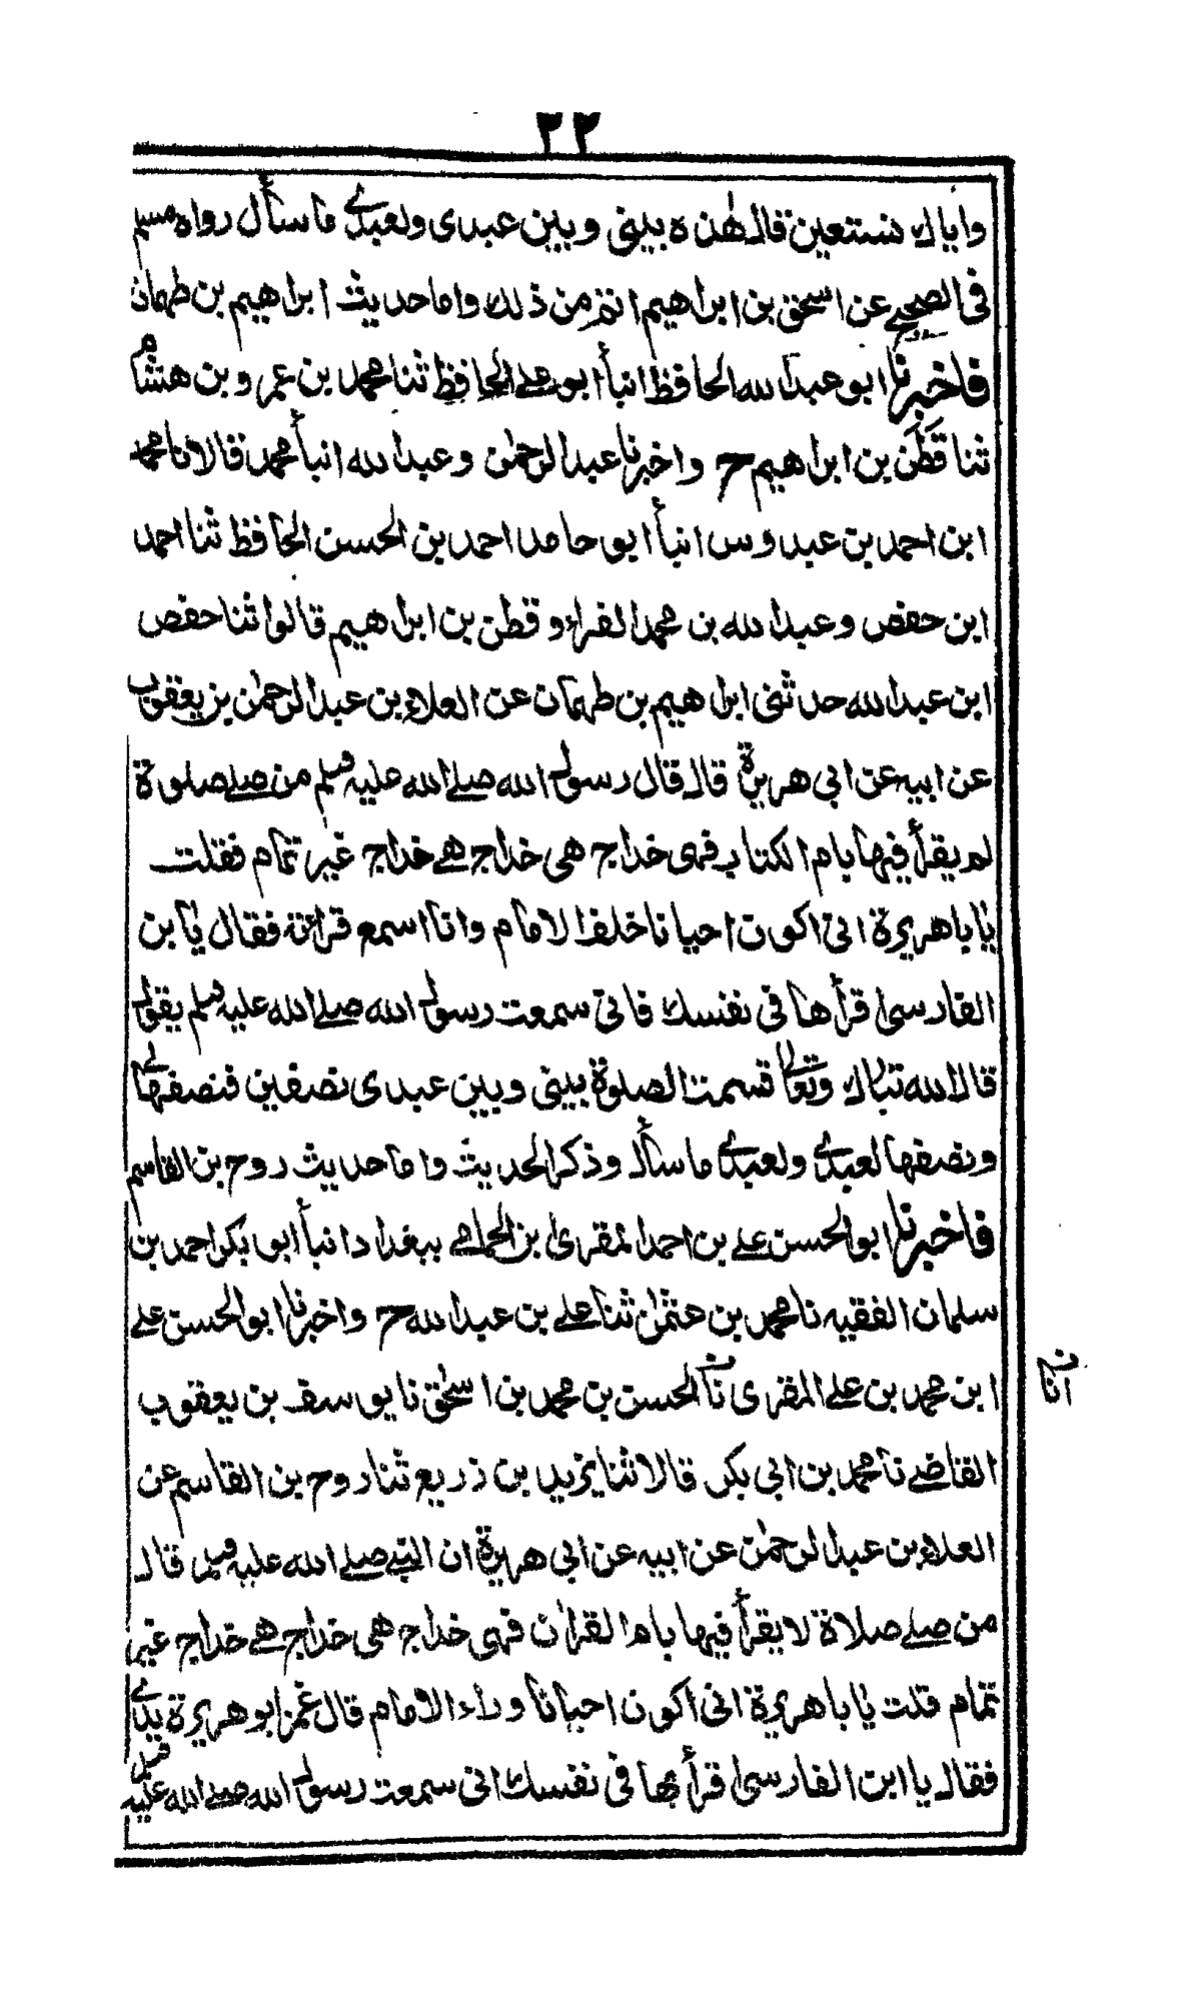 ٢٢
واياك نستعين قال هذه بيني وبين عبدى ولعبدي ما سأل رواه مسلم
فى الصحيح عن اسحق بن ابراهيم اتم من ذلك واما حديث ابراهيم بن طهمان
فاخبرنا ابو عبد الله الحافظ انبأ ابو علي الحافظ ثنا محمد بن عمرو بن هشام
ثنا قطن بن ابراهيم ح واخبرنا عبد الرحمن وعبد الله انبأ محمد قالا نا محمد
ابن احمد بن عبدوس انبأ ابو حامد احمد بن الحسن الحافظ ثنا احمد
ابن حفص وعبد الله بن محمد الفراء وقطن بن ابراهيم قالوا ثنا حفص
ابن عبد الله حدثنى ابراهيم بن طهمان عن العلاء بن عبد الرحمن بن يعقوب
عن ابيه عن ابي هريرة قال قال رسول الله صلے الله عليه وسلم من صلے صلوة
لم يقرأ فيها بام الكتاب فهى خداج هى خداج هے خداج غير تمام فقلت
يا با هريرة انى اكون احيانا خلف الامام وانا اسمع قرائته فقال يا بن
الفارسى اقرأ ها فى نفسك فانى سمعت رسول الله صلے الله عليه وسلم يقول
قال الله تبارك وتعالى قسمت الصلوة بيني وبين عبدى نصفين فنصفها لي
ونصفها لعبدي ولعبدي ما سأل وذكر الحديث واما حديث روح بن القاسم
فاخبرنا ابو الحسن علے بن احمد المقرى ابن الحمامے ببغداد انبأ ابو بكر احمد بن
سلمان الفقيه نا محمد بن عثمان ثنا علے بن عبد الله ح واخبرنا ابو الحسن علے
ابن محمد بن علے المقرى نا الحسن بن محمد بن اسحق نا يوسف بن يعقوب
القاضے نا محمد بن ابى بكر قالا ثنا يزيد بن زريع ثنا روح بن القاسم عن
العلاء بن عبد الرحمن عن ابيه عن ابي هريرة ان النبے صلے الله عليه وسلم قال
من صلے صلاة لا يقرأ فيها بام القران فهى خداج هى خداج هے خداج غير
تمام قلت يا با هريرة انى اكون احيانا وراء الامام قال غمز ابو هريرة يدي
فقال يا ابن الفارسى اقرأ بها فى نفسك انى سمعت رسول الله صلے الله عليه وسلم